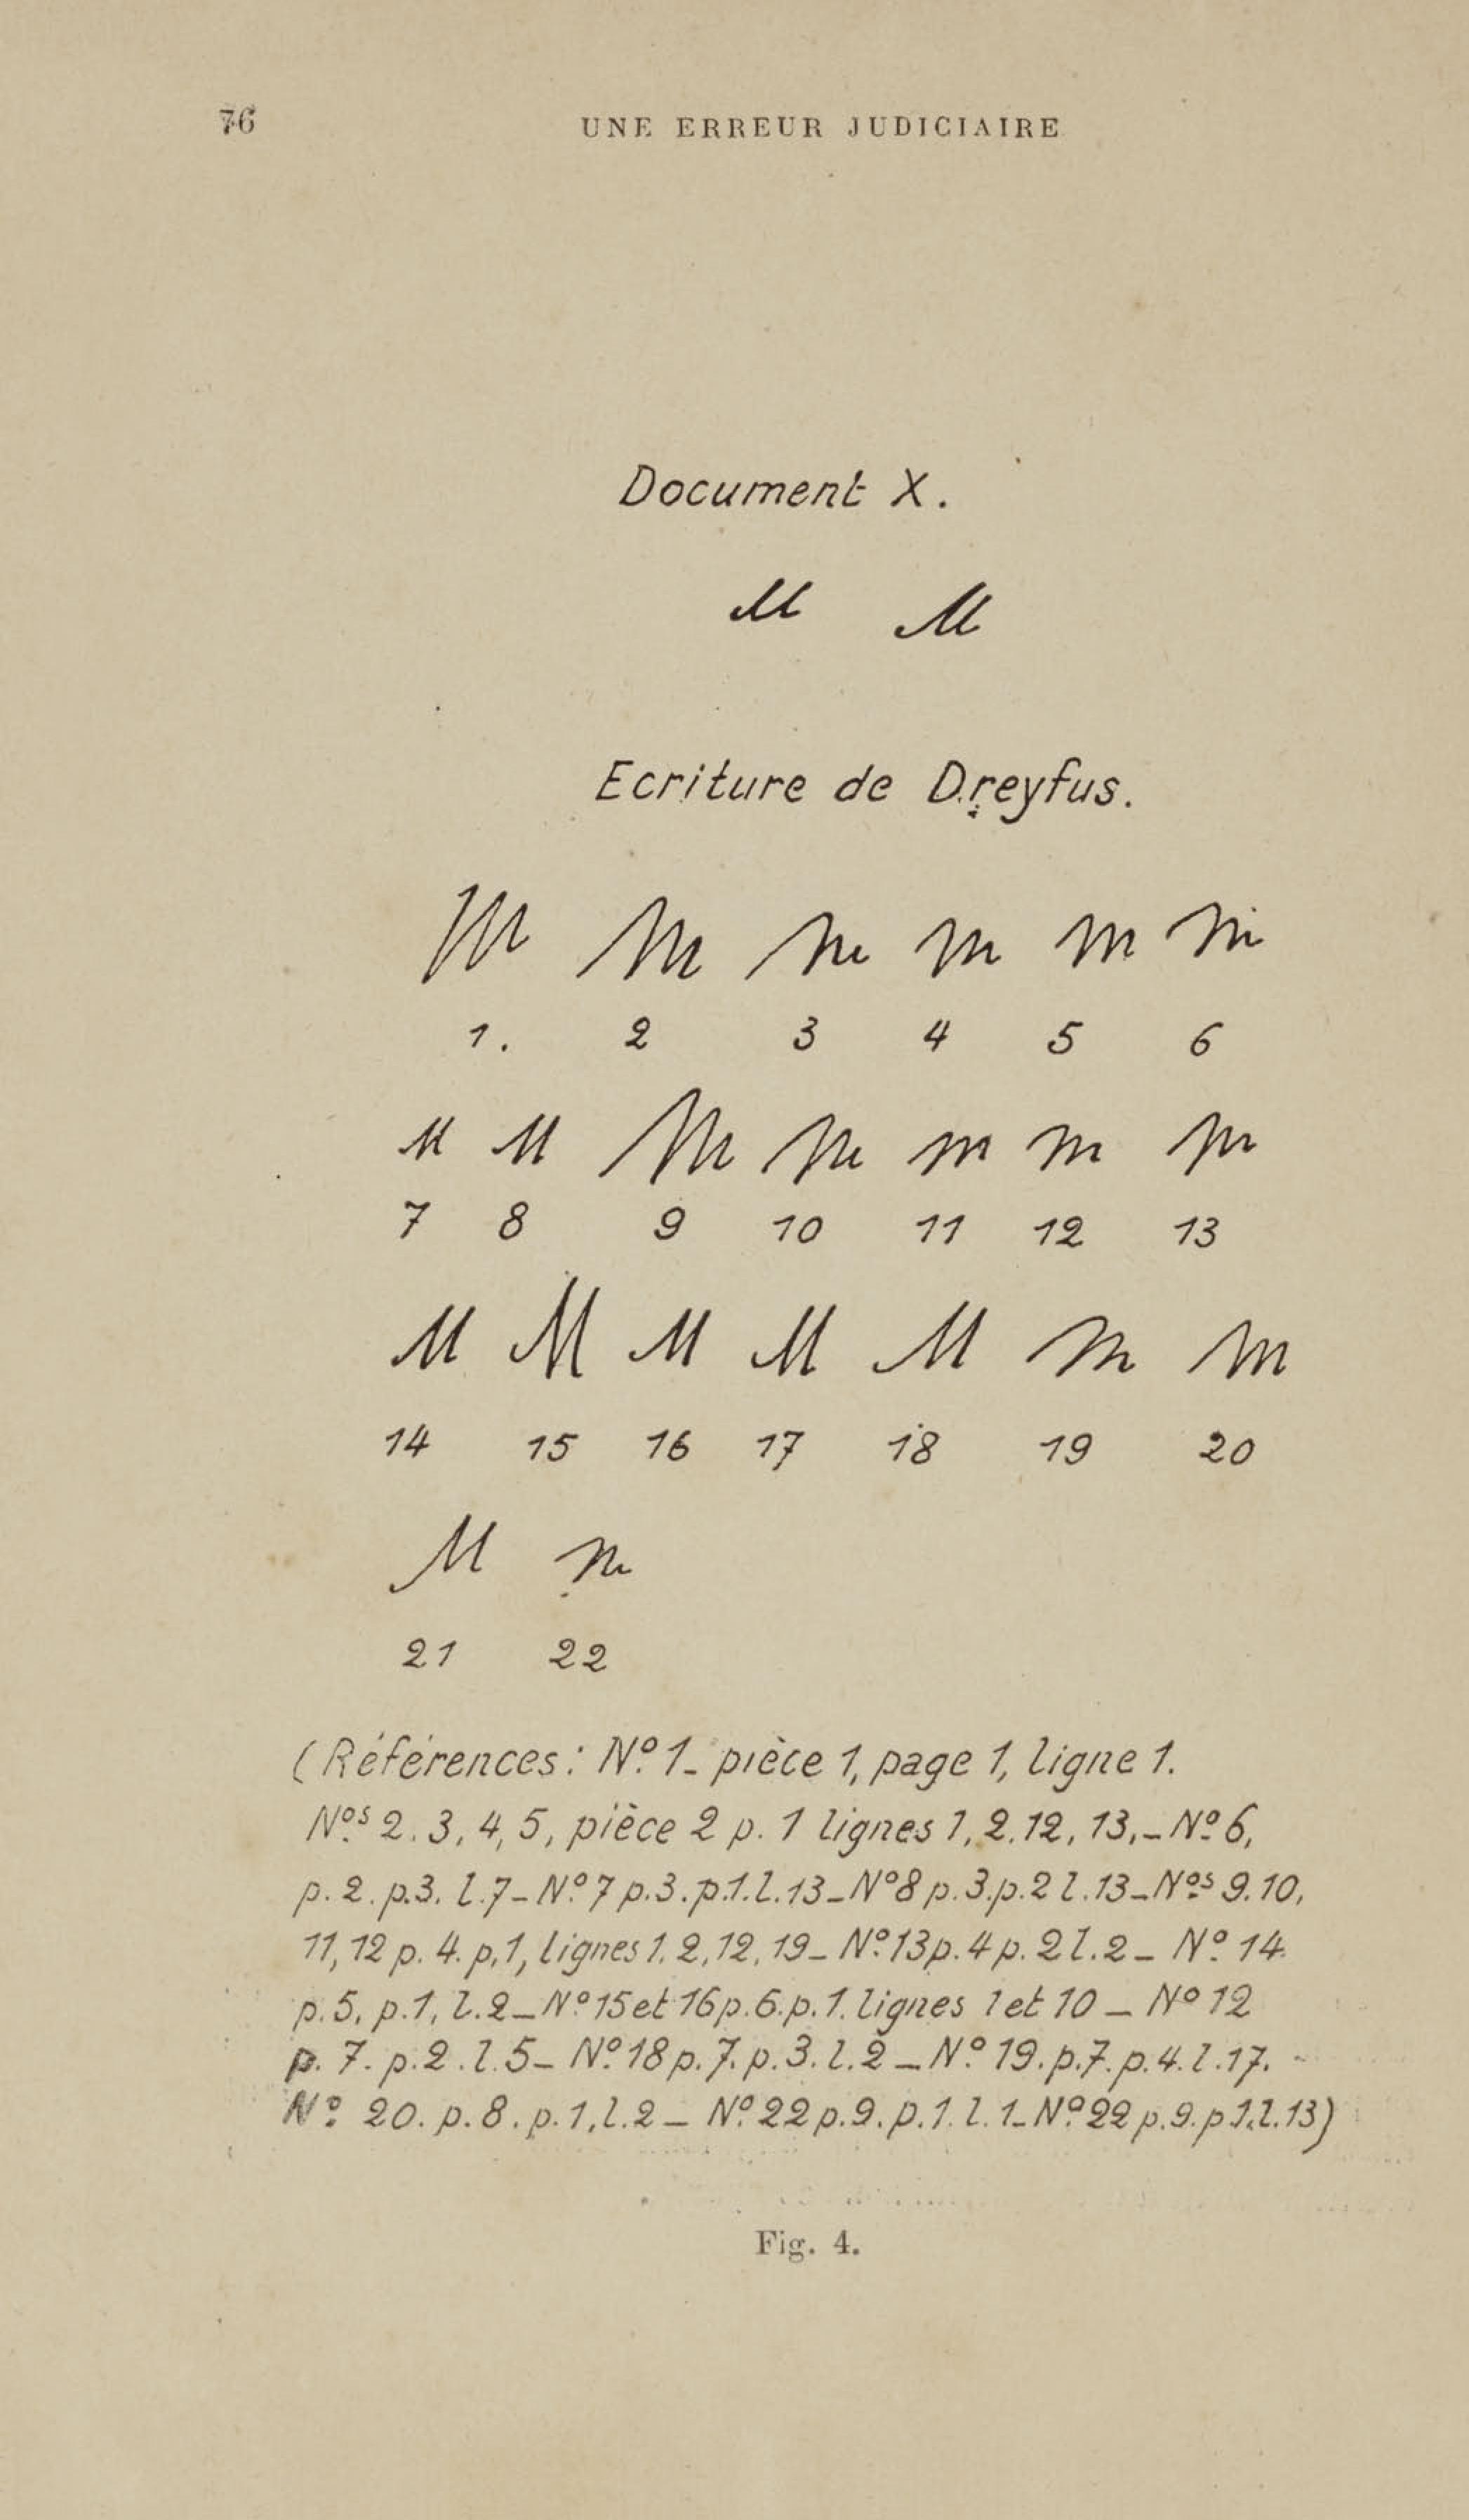 76 UNE ERREUR JUDICIAIRE
Document X.
M M
Ecriture de Dreyfus.
M M M M M M
1. 2 3 4 5 6
M M M M M M M
7 8 9 10 11 12 13
M M M M M M M
14 15 16 17 18 19 20
M M
21 22
(Références: Nº 1_ pièce 1, page 1, ligne 1.
Nºs 2. 3, 4, 5, pièce 2 p. 1 lignes 1, 2. 12, 13, _ Nº 6,
p. 2. p.3. l.7_ Nº 7 p.3. p.1. l.13_ Nº 8 p.3. p.2 l.13_ Nºs 9. 10,
11, 12 p. 4. p.1, lignes 1. 2, 12, 19_ Nº 13 p.4 p. 2 l. 2 _ Nº 14.
p. 5, p.1, l. 2_ Nº 15 et 16 p.6. p.1. lignes 1 et 10 _ Nº 12
p. 7. p.2. l. 5_ Nº 18 p. 7. p. 3. l. 2 _ Nº 19. p.7. p. 4. l. 17.
Nº 20. p. 8. p. 1, l. 2 _ Nº 22 p. 9. p. 1. l. 1_ Nº 22 p. 9. p 1. l. 13)
Fig. 4.